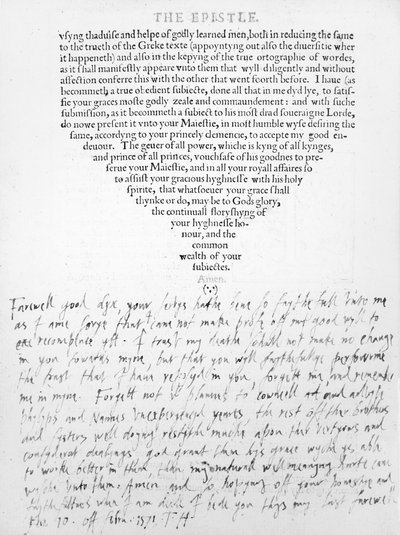 THE EPISTLE.
vsyng thaduise and helpe of godly learned men, both in reducing the same
to the trueth of the Greke texte (appoyntyng out also the diuersitie wher
it happeneth) and also in the kepyng of the true ortographie of wordes,
as it shall manifestly appeare vnto them that wyll diligently and without
affection conferre this with the other that went foorth before. I haue (as
becommeth a true obedient subiecte) done all that in me dyd lye, to satis-
fie your graces moste godly zeale and commaundement: and with suche
submission, as it becommeth a subiect to his most drad soueraigne Lorde,
do nowe present it vnto your Maiestie, in most humble wyse desiring the
same, accordyng to your princely clemence, to accepte my good en-
deuour. The geuer of all power, whiche is kyng of all kynges,
and prince of all princes, vouchsafe of his goodnes to pre-
serue your Maiestie, and in all your royall affaires so
to assist your gracious hyghnesse with his holy
spirite, that whatsoeuer your grace shall
thynke or do, may be to Gods glory,
the continuall floryshyng of
your hyghnesse ho-
nour, and the
common
wealth of your
subiectes.
Amen.
Farewell good dyx, your serbys hathe bene so faythefull vnto me
as I ame sorye that I cane not make profe off my good wyll to
recompence yt. I trust my deathe shall not make no change
in you towards myne, but that you wyll faythefully performe
the trust that I have reposyd in you, forgett me and remembe
me in myne. Forgett not to cowncell and advyse
Phelyps and Nannes vnexperienced yeares the rest of ther brothers
and systers well doyng restythe muche apon ther vertyous and
consyderat dealyngs god grant them hys grace wyche ys able
to worke better in them than my natural well meanyng harte can
wyshe vnto them. Amen and so hopyng off your honestie and
faythefullnes when I am dead I bede you thys my last farewell
the 10. off febru. 1571. T H.